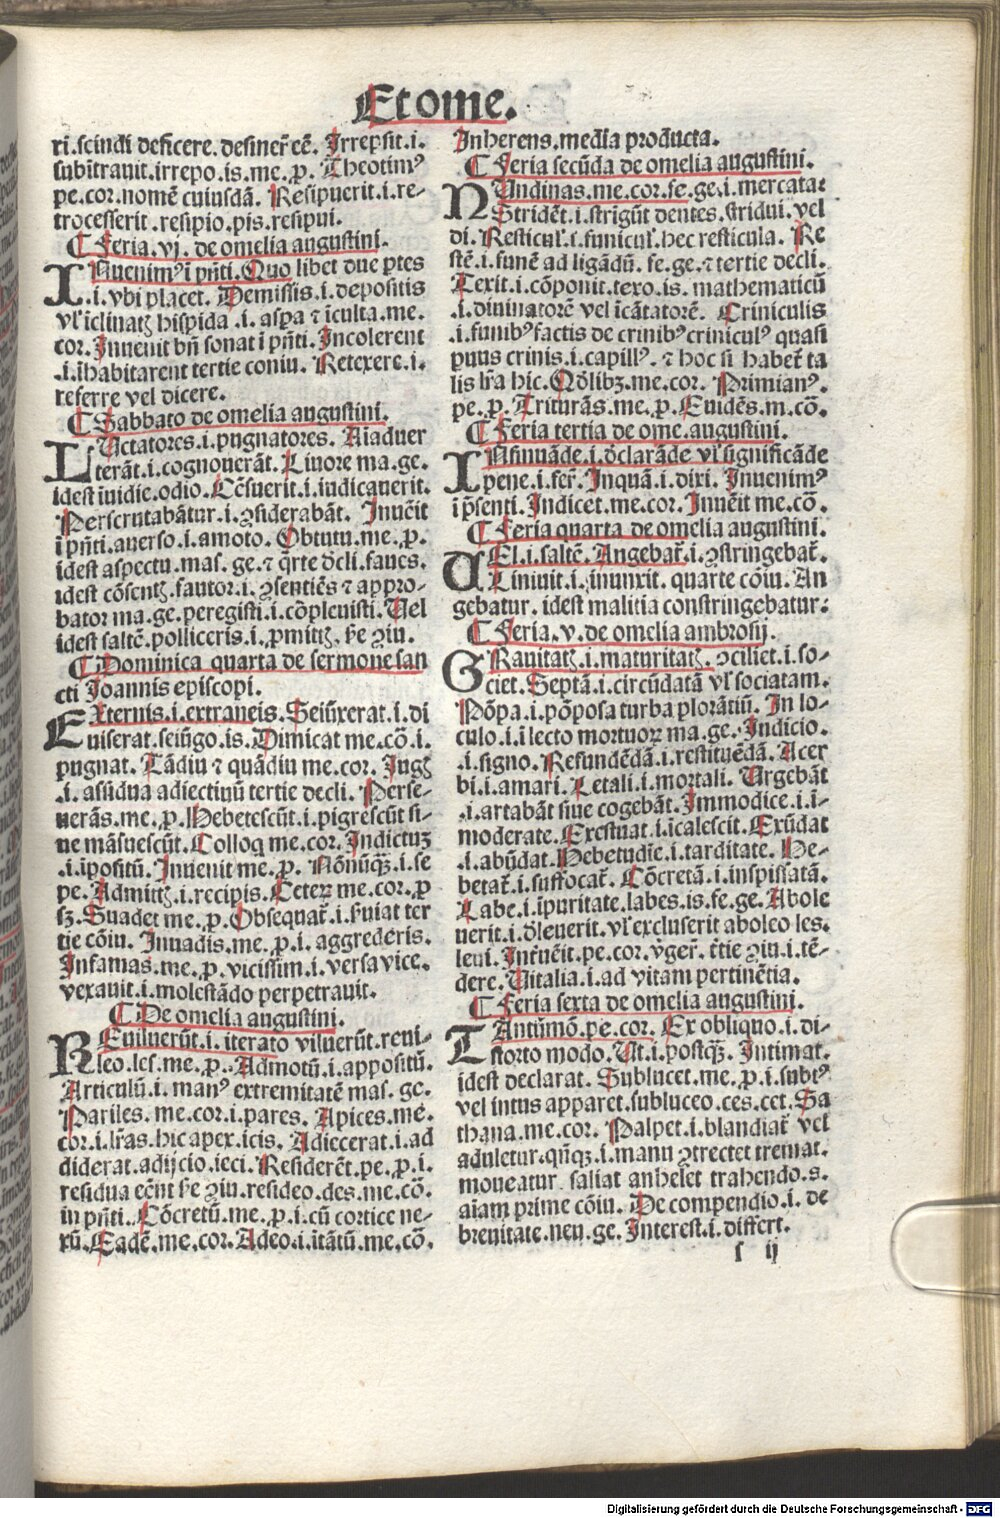 Et ome.
ri.scindi deficere.desiner̄ cē. Irrepsit.i.
subītrauit.irrepo.is.me.p. Theotimꝰ
pe.cor.nomē cuiusdā. Resipuerit.i.re-
trocesserit.resipio.pis.resipui.
¶ Feria.vj. de omelia augustini.
INuenimꝰ ī pñti. Quo libet due ptes
.i.vbi placet. Demissis.i.depositis
vl̓ īclinatꝭ hispida .i. aspa ⁊ īculta.me.
cor. Inuenit bñ sonat ī pñti. Incolerent
.i.īhabitarent tertie coniu. Retexere.i.
referre vel dicere.
¶ Sabbato de omelia augustini.
LUctatores.i.pugnatores. Aīaduer
terāt.i.cognouerāt. Liuore ma.ge.
idest īuidie.odio. Cēsuerit.i.iudicauerit.
Perscrutabātur.i.ꝯsiderabāt. Inuēit
ī pñti.auerso.i.amoto. Obtutu.me.p.
idest aspectu.mas.ge.⁊ q̄rte d̄cli.faues.
idest cōsentꝭ.fautor.i.ꝯsentiēs ⁊ appro-
bator ma.ge.peregisti.i.cōpleuisti. Uel
idest saltē.polliceris.i.pmittꝭ. ẜe ꝯiu.
¶ Dominica quarta de sermone san
cti Joannis episcopi.
EXternis.i.extraneis. Seiūxerat.i.di
uiserat.seiūgo.is. Dimicat me.cō.i.
pugnat. Tādiu ⁊ quādiu me.cor. Iugꝭ
.i.assidua adiectiuū tertie decli. Perse-
uerās.me.p. Hebetescūt.i.pigrescūt si-
ue māsuescūt. Colloq̄ me.cor. Indictuꝫ
.i.īpositū. Inuenit me.p. Nōnūq̄ꝫ.i.se
pe. Admittꝭ.i.recipis. Ceterꝝ me.cor.p
sꝫ. Suadet me.p. Obsequat̄.i.ẜuiat ter
tie cōiu. Inuadis.me.p.i.aggrederis.
Infamas.me.p.vicissim.i.versa vice.
vexauit.i.molestādo perpetrauit.
¶ De omelia augustini.
REuiluerūt.i.iterato viluerūt.reui-
leo.les.me.p. Admotū.i.appositū.
Articulū.i.manꝰ extremitatē mas.ge.
Pariles.me.cor.i.pares. Apices.me.
cor.i.lr̄as.hic apex.icis. Adiecerat.i.ad
diderat.adijcio.ieci. Residerēt.pe.p.i.
residua eēnt ẜe ꝯiu.resideo.des.me.cō.
in pñti. Cōcretū.me.p.i.cū cortice ne-
xū. Eadē.me.cor. Adeo.i.ītātū.me.cō.
Inherens.med̄ia producta.
¶ Feria secūda de omelia augustini.
NUndinas.me.cor.fe.ge.i.mercata:
Stridēt.i.strigūt dentes.stridui.vel
di. Resticul̓.i.funicul̓.hec resticula. Re
stē.i.funē ad ligādū.fe.ge.⁊ tertie decli.
Texit.i.cōponit.texo.is. mathematicū
.i.diuinatorē vel īcātatorē. Criniculis
.i.funibꝰ factis de crinibꝰ criniculꝰ quasi
puus crinis.i.capillꝰ. ⁊ hoc si habet̄ ta
lis lr̄a hic. Qd̓libꝫ.me.cor. Primianꝰ.
pe.p. Triturās.me.p. Euidēs.m.cō.
¶ Feria tertia de ome.augustini.
INsinuāde.i.d̓clarāde vl̓ significāde
pene.i.fer̄. Inquā.i.dixi. Inuenimꝰ
ī p̄senti. Indicet.me.cor. Inuēit me.cō.
¶ Feria quarta de omelia augustini.
UEl.i.saltē. Angebat̄.i.ꝯstringebat̄.
Liniuit.i.inunxit. quarte cōiu. An
gebatur. idest malitia constringebatur:
¶ Feria.v.de omelia ambrosij.
GRauitatꝭ.i.maturitatꝭ. ꝯciliet.i.so-
ciet. Septā.i.circūdatā vl̓ sociatam.
Pōpa.i.pōposa turba plorātiū. In lo-
culo.i.ī lecto mortuoꝝ ma.ge. Indicio.
.i.signo. Refundēdā.i.restituēdā. Acer
bi.i.amari. Letali.i.mortali. Urgebāt
.i.artabāt siue cogebāt. Immodice.i.i-
moderate. Exestuat.i.īcalescit. Exūdat
.i.abūdat. Hebetudīe.i.tarditate. He-
betat̄.i.suffocat̄. Cōcretā.i.inspissatā.
Labe.i.īpuritate.labes.is.fe.ge. Abole
uerit.i.d̓leuerit.vl̓ excluserit aboleo les.
leui. Inr̄uēit.pe.cor.vger̄. t̄tie ꝯiu.i.tē-
dere. Uitalia.i.ad vitam pertinētia.
¶ Feria sexta de omelia augustini.
TAntūmō.pe.cor. Ex obliquo.i.di-
storto modo. Ut.i.postq̄ꝫ. Intimat.
idest declarat. Sublucet.me.p.i.subtꝰ
vel intus apparet.subluceo.ces.cet. Sa
thana.me.cor. Palpet.i.blandiat̄ vel
aduletur.qn̄qꝫ.i.manu ꝯtrectet tremat.
moueatur. saliat anhelet trahendo.s.
aīam prime cōiu. De compendio.i. de
breuitate.neu.ge. Interest.i.differt.
s ij
Digitalisierung gefördert durch die Deutsche Forschungsgemeinschaft - DFG